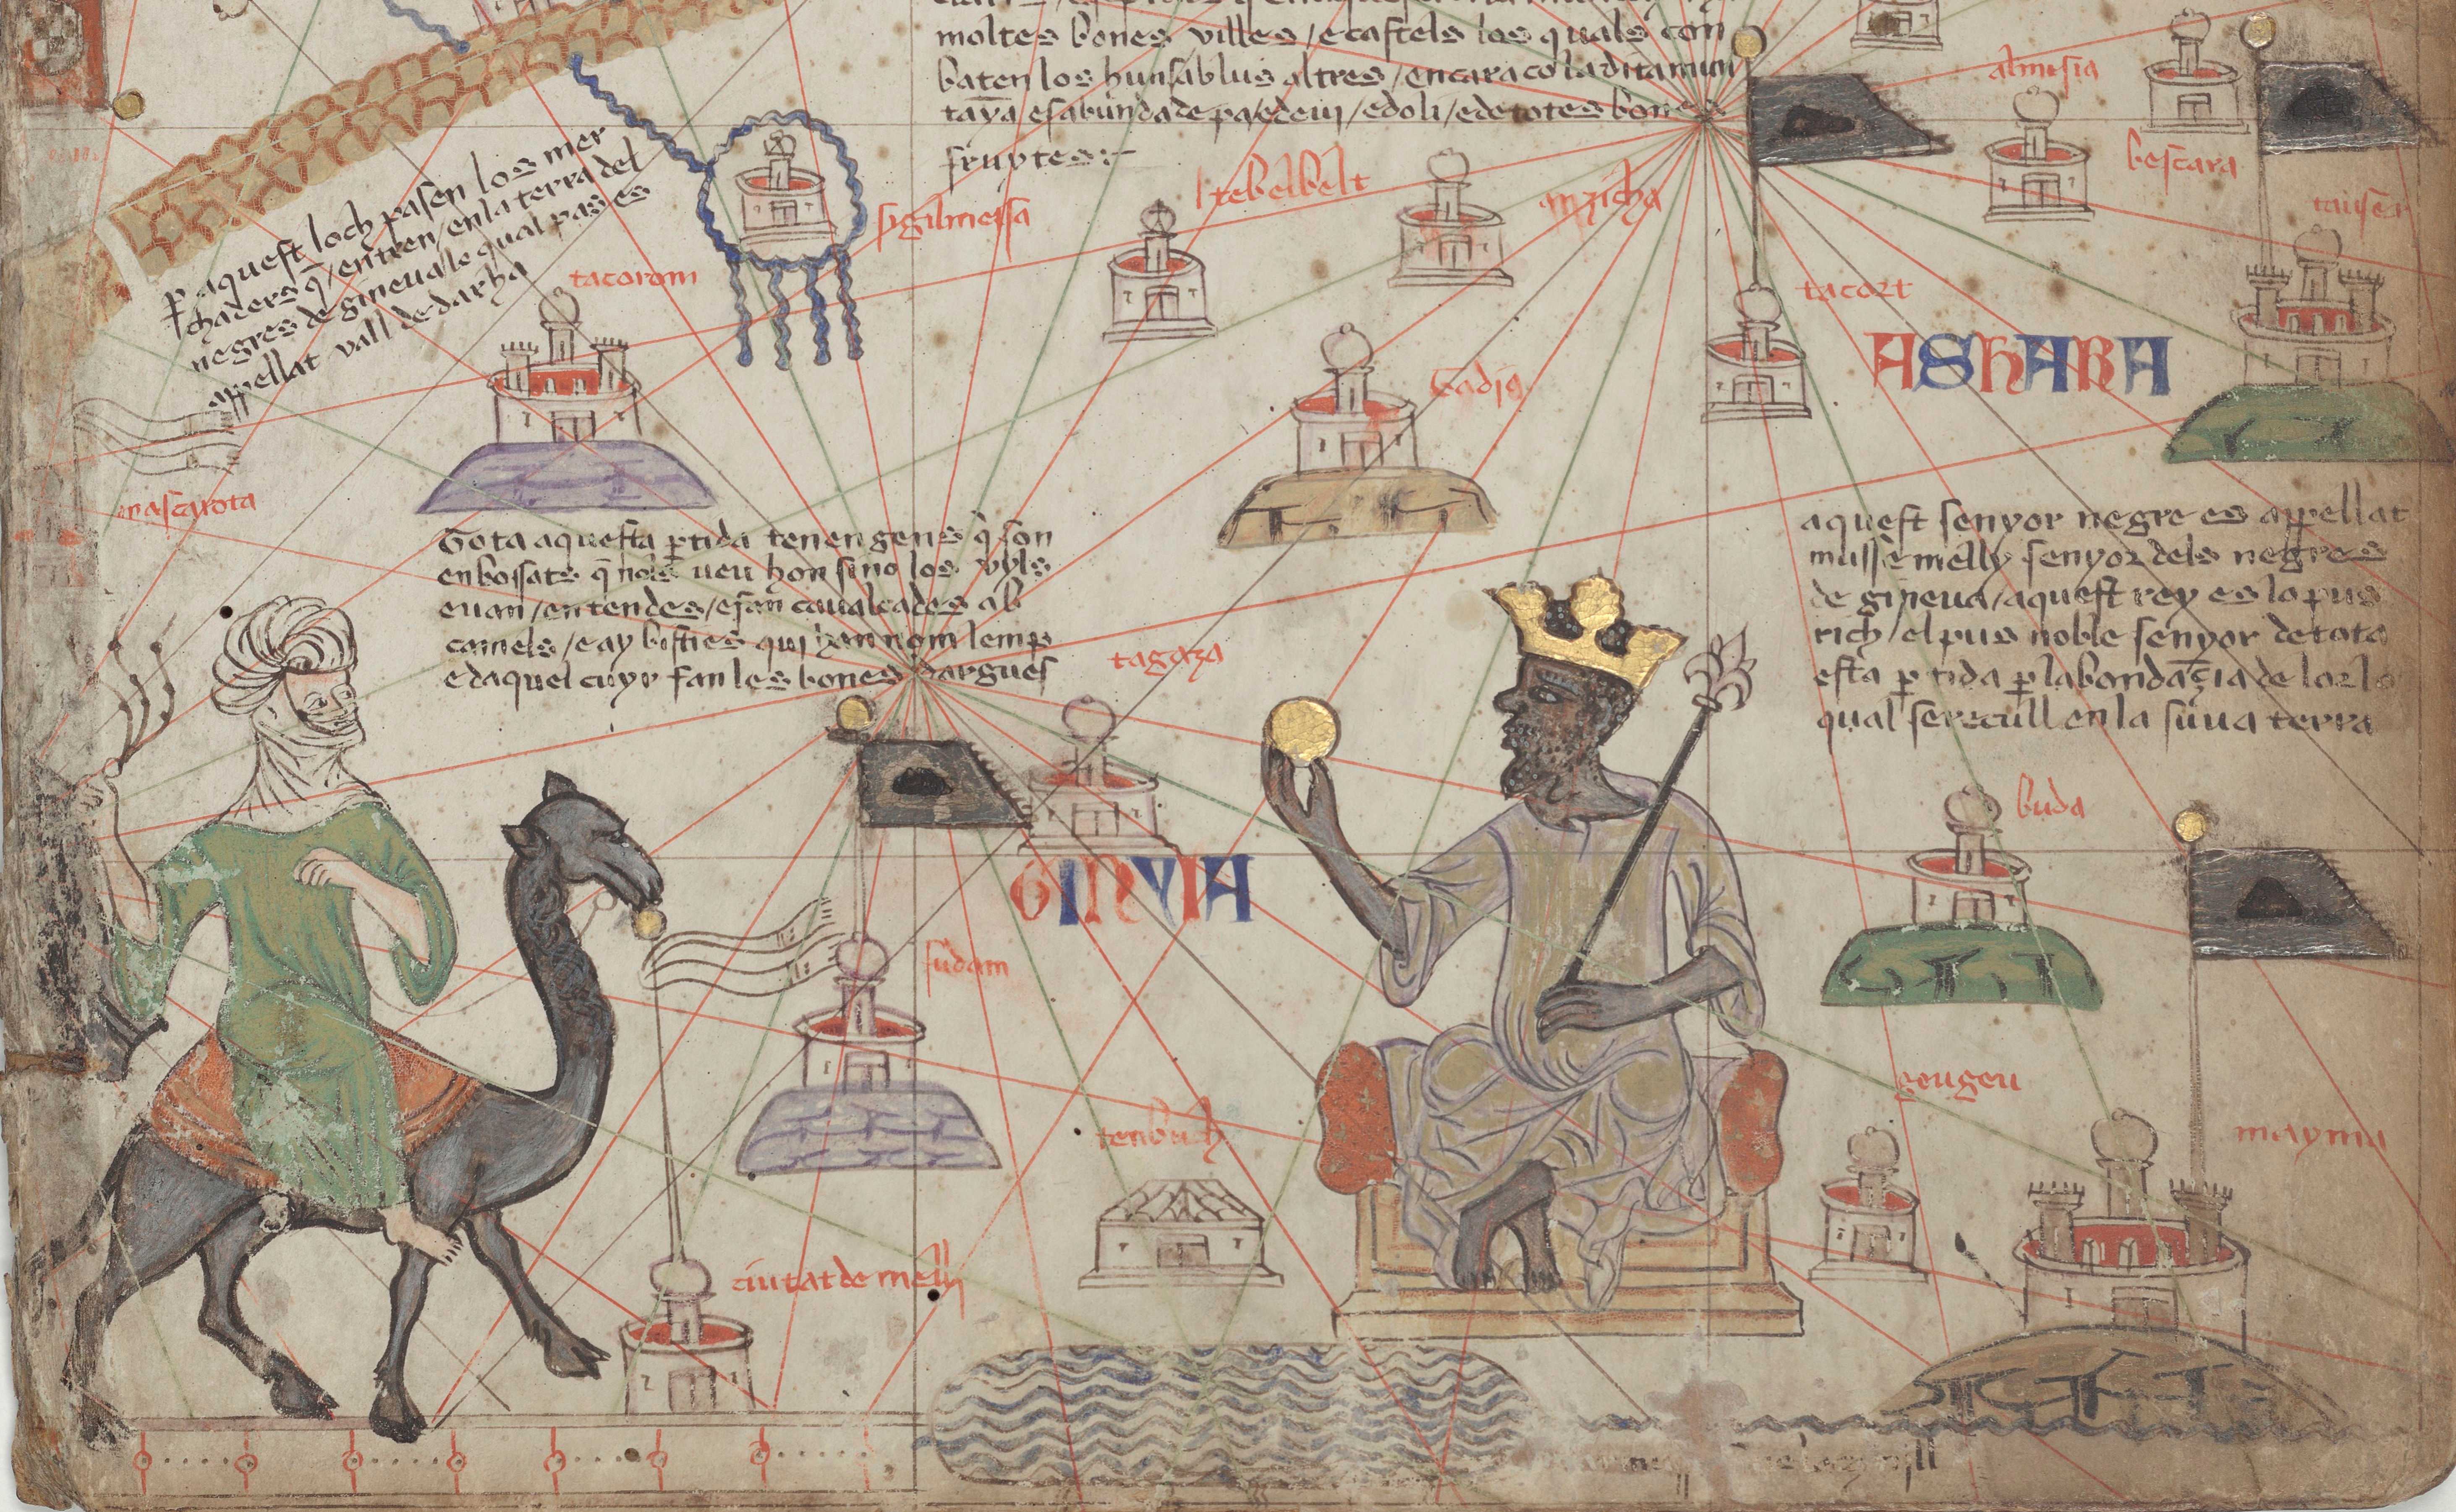 moltes bones villes / e castels los quals con
baten los huns ab lus altres / encara co la dita mun
taya es abundada de pa / e de vi / e d oli / e de totes bones
fruytes :~
almesia
bescara
ltebelbelt
anzicha
sigilmessa
p aquest loch pasen los mer
chaders q̄ / entren / en la terra del
negres de gineua / lo qual pas es
appellat vall de darha
tacorom
tacort
ASHARA
tadis
mascarota
Tota aquesta ptida tenen gens q̄ son
enbossats q̄ nols veu hon sino los vyls
e van / en tendes / e fan caualcades ab
camels / e ay bisties qui han nom lemp
e daquel cuyr fan les bones dargues
aquest senyor negre es appellat
musse melly senyor dels negres
de gineua / aquest rey es lo pus
rich / el pus noble senyor de tota
esta ptida p labondaçia de lor lo
qual se recull en la suua terra
tagaza
buda
GINYIA
sudam
geugeu
tenbuch
mayma
ciutat de melli